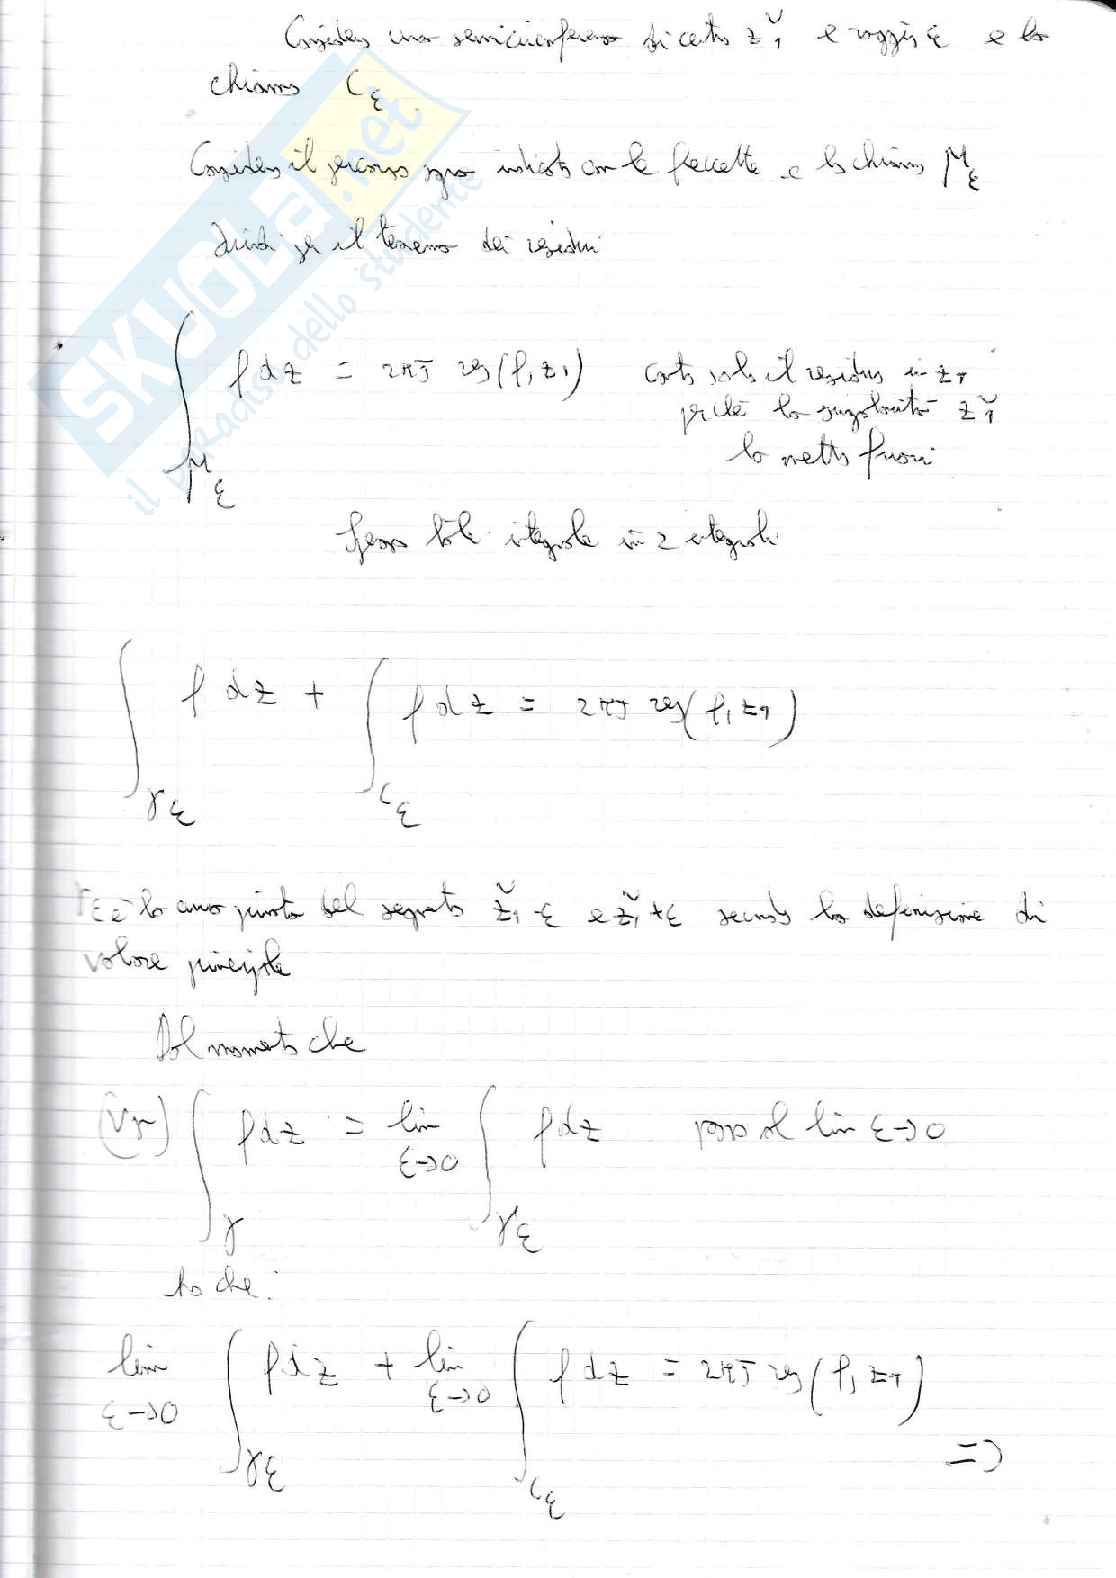 Considero una semicirconferenza di centro ž₁ e raggio ε e la
chiamo C_ε
Considero il percorso sopra indicato con le freccette e lo chiamo μ_ε
Quindi per il teorema dei residui
∫_{μ_ε} f dz = 2πJ res(f, z₁) conto solo il residuo in z₁
perché la singolarità ž₁
la metto fuori
Spezzo tale integrale in 2 integrali
∫_{γ_ε} f dz + ∫_{C_ε} f dz = 2πJ res(f, z₁)
γ_ε è la curva privata del segmento ž₁-ε e ž₁+ε secondo la definizione di
valore principale
Dal momento che
(vp) ∫_γ f dz = lim_{ε→0} ∫_{γ_ε} f dz passo al lim ε→0
ho che:
lim_{ε→0} ∫_{γ_ε} f dz + lim_{ε→0} ∫_{C_ε} f dz = 2πJ res(f, z₁)
=>
SKUOLA.net
il paradiso dello studente